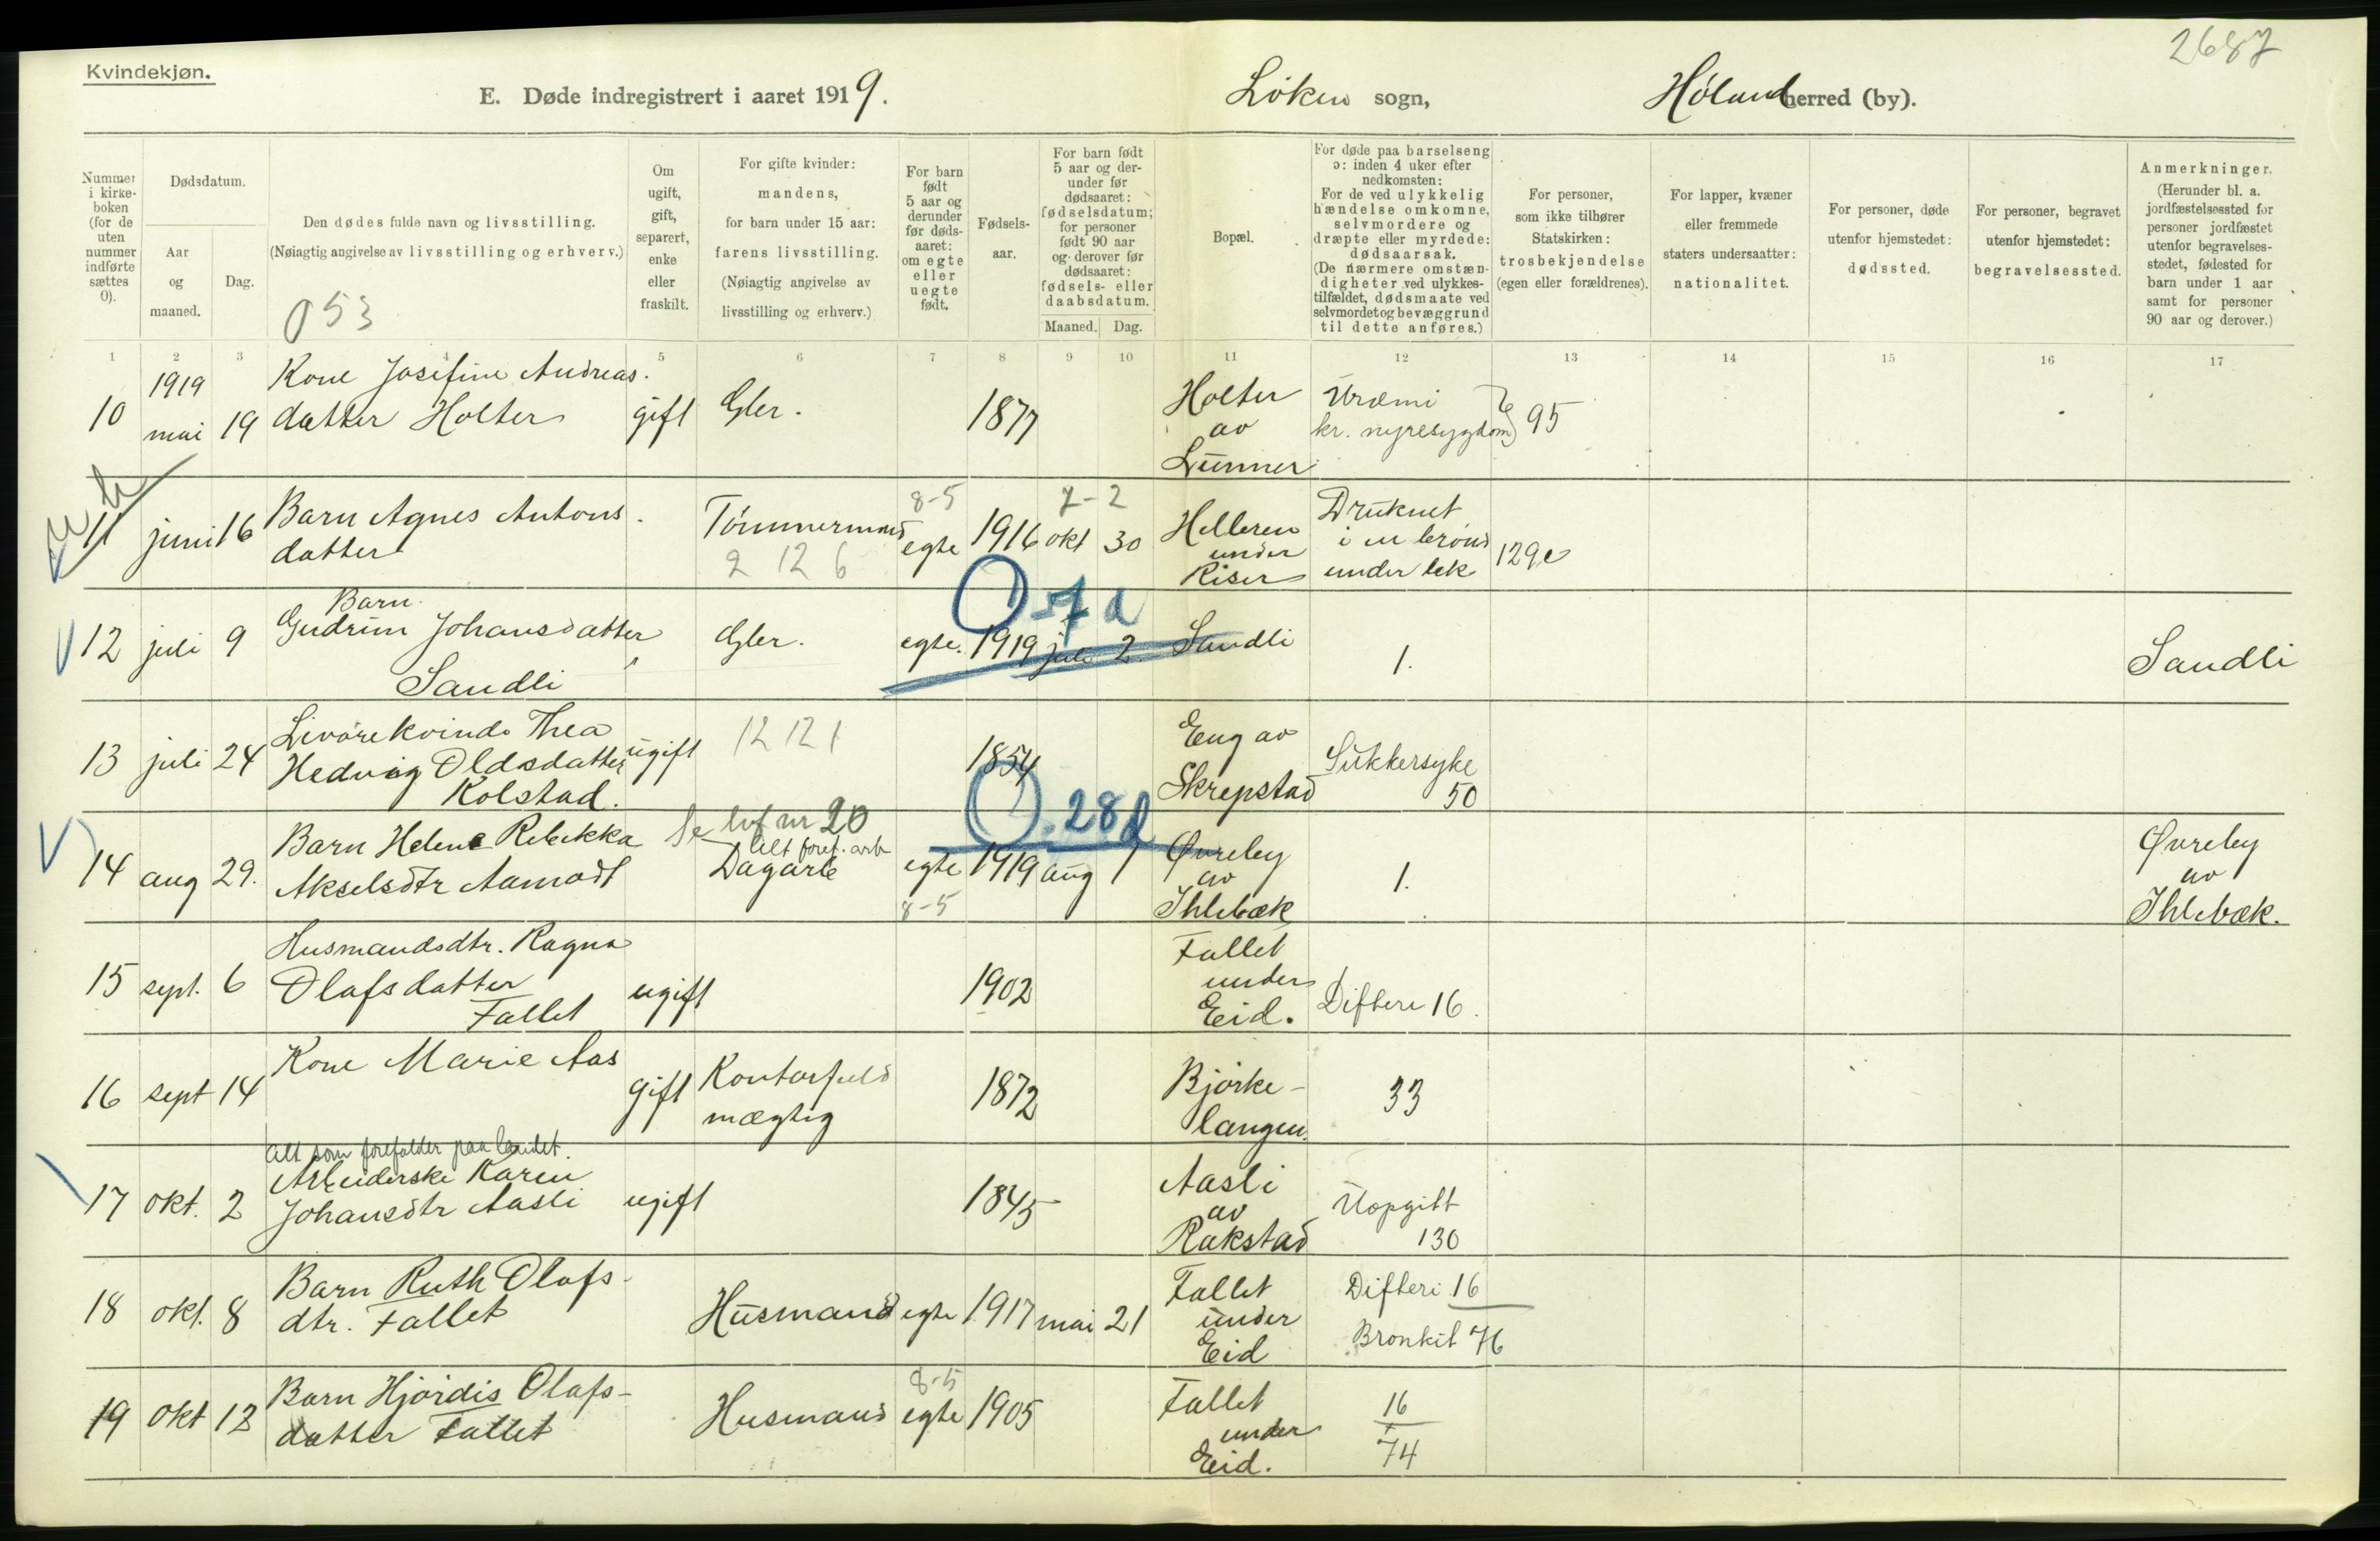 2687
Kvindekjøn.
E. Døde indregistrert i aaret 1919.
Løken sogn,
Høland herred (by).
Nummer i kirkeboken (for de uten nummer indførte sættes 0).
Dødsdatum.
Aar og maaned.
Dag.
Den dødes fulde navn og livsstilling.
(Nøiagtig angivelse av livsstilling og erhverv.)
053
Om ugift, gift, separert, enke eller fraskilt.
For gifte kvinder: mandens, for barn under 15 aar: farens livsstilling.
(Nøiagtig angivelse av livsstilling og erhverv.)
For barn født 5 aar og derunder før dødsaaret: om egte eller uegte født.
Fødselsaar.
For barn født 5 aar og derunder før dødsaaret: fødselsdatum; for personer født 90 aar og derover før dødsaaret: fødsels- eller daabsdatum.
Maaned. Dag.
Bopæl.
For døde paa barselseng ɔ: inden 4 uker efter nedkomsten:
For de ved ulykkelig hændelse omkomne, selvmordere og dræpte eller myrdede: dødsaarsak.
(De nærmere omstændigheter ved ulykkestilfældet, dødsmaate ved selvmordet og bevæggrund til dette anføres.)
For personer, som ikke tilhører Statskirken: trosbekjendelse (egen eller forældrenes).
For lapper, kvæner eller fremmede staters undersaatter: nationalitet.
For personer, døde utenfor hjemstedet: dødssted.
For personer, begravet utenfor hjemstedet: begravelsessted.
Anmerkninger.
(Herunder bl. a. jordfæstelsessted for personer jordfæstet utenfor begravelsesstedet, fødested for barn under 1 aar samt for personer 90 aar og derover.)
1 2 3 4 5 6 7 8 9 10 11 12 13 14 15 16 17
10 1919 mai 19 Kone Josefine Andreas-
datter Holter gift Gbr. 1877 Holter av Lunner Uræmi kr. nyresygdom 95
11 juni 16 Barn Agnes Antons-
datter Tømmermand 2 12 6 8-5 egte 1916 okt 30 7-2 Helleren under Riser Druknet i en brønd under lek 129e
12 juli 9 Barn
Gudrun Johansdatter
Sandli Gbr. egte. 1919 juli 2 7 d Sandli 1. Sandli
13 juli 24 Livørekvinde Thea
Hedvig Oldsdatter
Kolstad. ugift 12 12 1 1854 Eng av Skrepstad Sukkersyke 50
14 aug 29. Barn Helene Rebekka
Akselsdtr Aamodt Se lvf nr 20
Alt foref. arb
Dagarb egte 8-5 1919 aug 1 28 d Øvreby av Ihlebæk 1. Øvreby av Ihlebæk.
15 sept. 6 Husmandsdtr. Ragna
Olafsdatter
Fallet ugift 1902 Fallet under Eid. Difteri 16.
16 sept 14 Kone Marie Aas gift Kontorfuld
mægtig 1872 Bjørke-
langen. 33
17 okt. 2 alt som forefalder paa landet.
Arbeiderske Karen
Johansdtr Aasli ugift 1845 Aasli av Rakstad Uopgitt 130
18 okt. 8 Barn Ruth Olafs-
dtr. Fallet Husmand egte 1917 mai 21 Fallet under Eid Difteri 16
Bronkit 76
19 okt 12 Barn Hjørdis Olafs-
datter Fallet Husmand 8-5 egte 1905 Fallet under Eid. 16
74